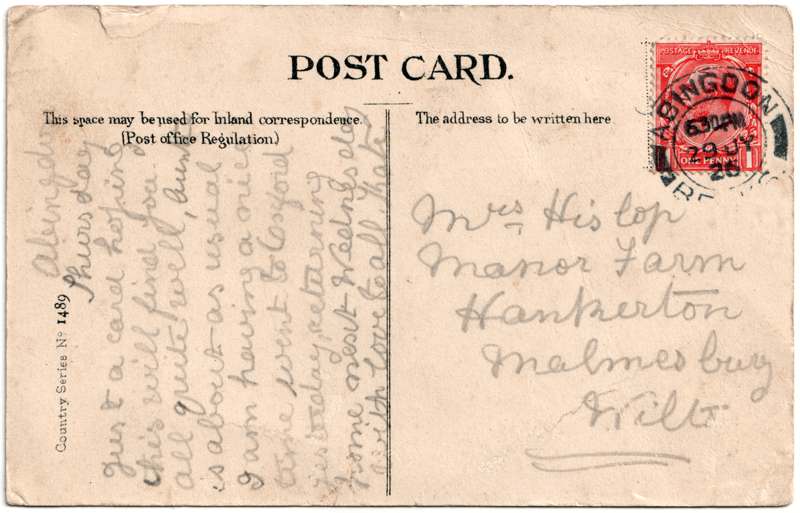 POST CARD.
This space may be used for Inland correspondence.
(Post office Regulation.)
The address to be written here
POSTAGE REVENUE
ONE PENNY 1
ABINGDON
6.30 PM
29 JY
26
Country Series No 1489
Abingdon
Thursday
Just a card hoping
this will find you
all quite well, aunt
is about as usual
I am having a nice
time went to Oxford
yesterday, returning
home next Wednesday
with love to all Kate
Mrs Hislop
Manor Farm
Hankerton
Malmesbury
Wilts